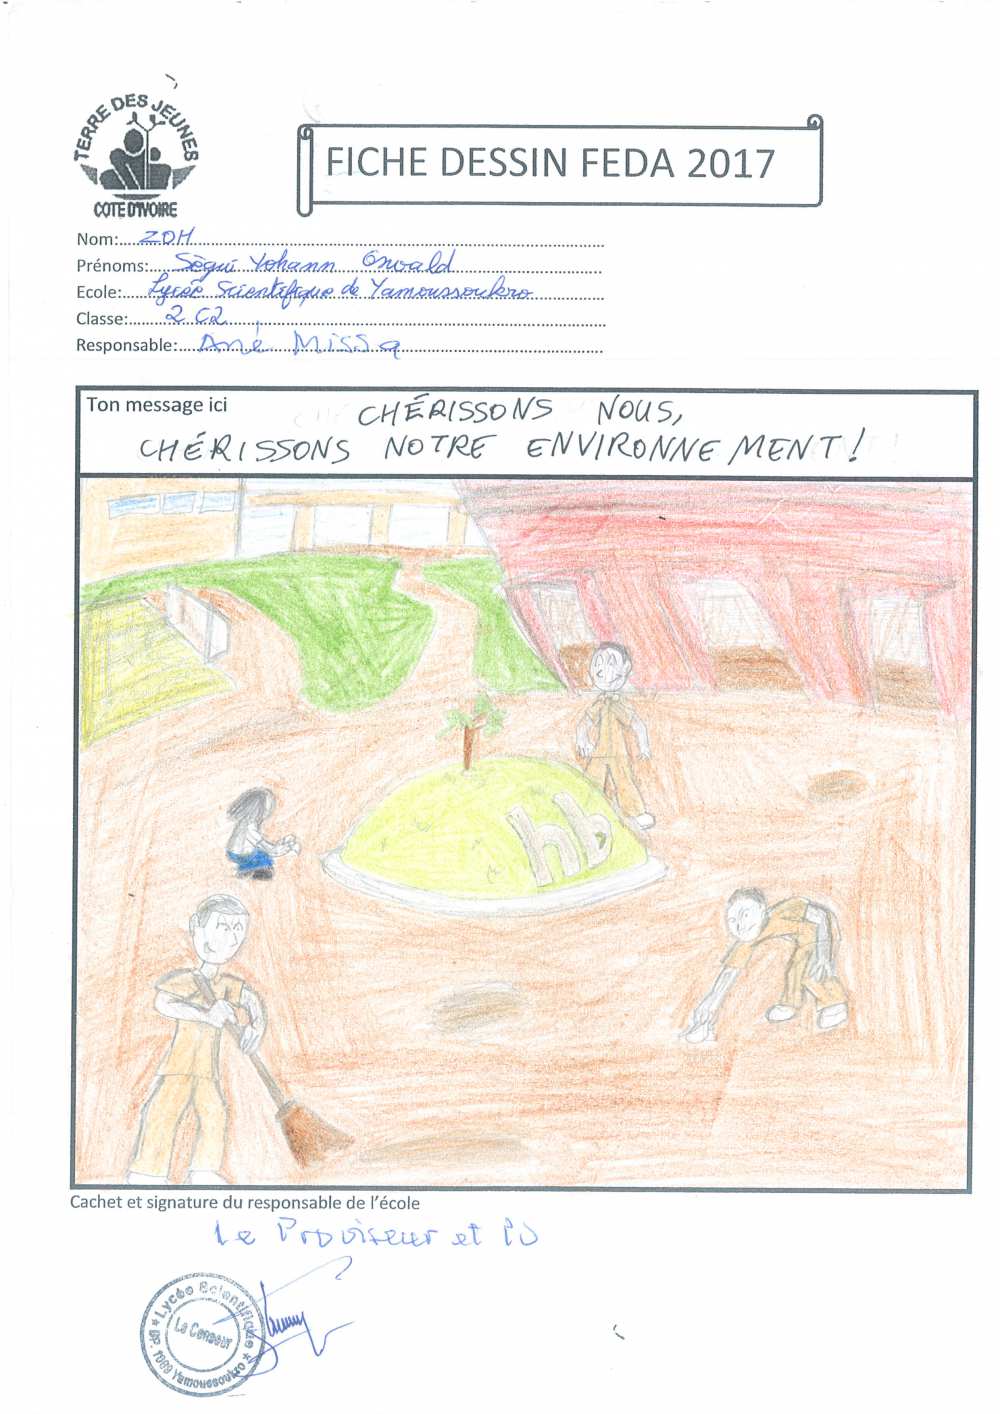 TERRE DES JEUNES
COTE D'IVOIRE
FICHE DESSIN FEDA 2017
Nom: ZOH
Prénoms: Sègui Yohann Oswald
Ecole: Lycée Scientifique de Yamoussoukro
Classe: 2 C2
Responsable: Ané Missa
Ton message ici
CHÉRISSONS NOUS,
CHÉRISSONS NOTRE ENVIRONNEMENT!
hb
Cachet et signature du responsable de l'école
Le Proviseur et PO
Lycée Scientifique
Le Censeur
BP. 1069 Yamoussoukro